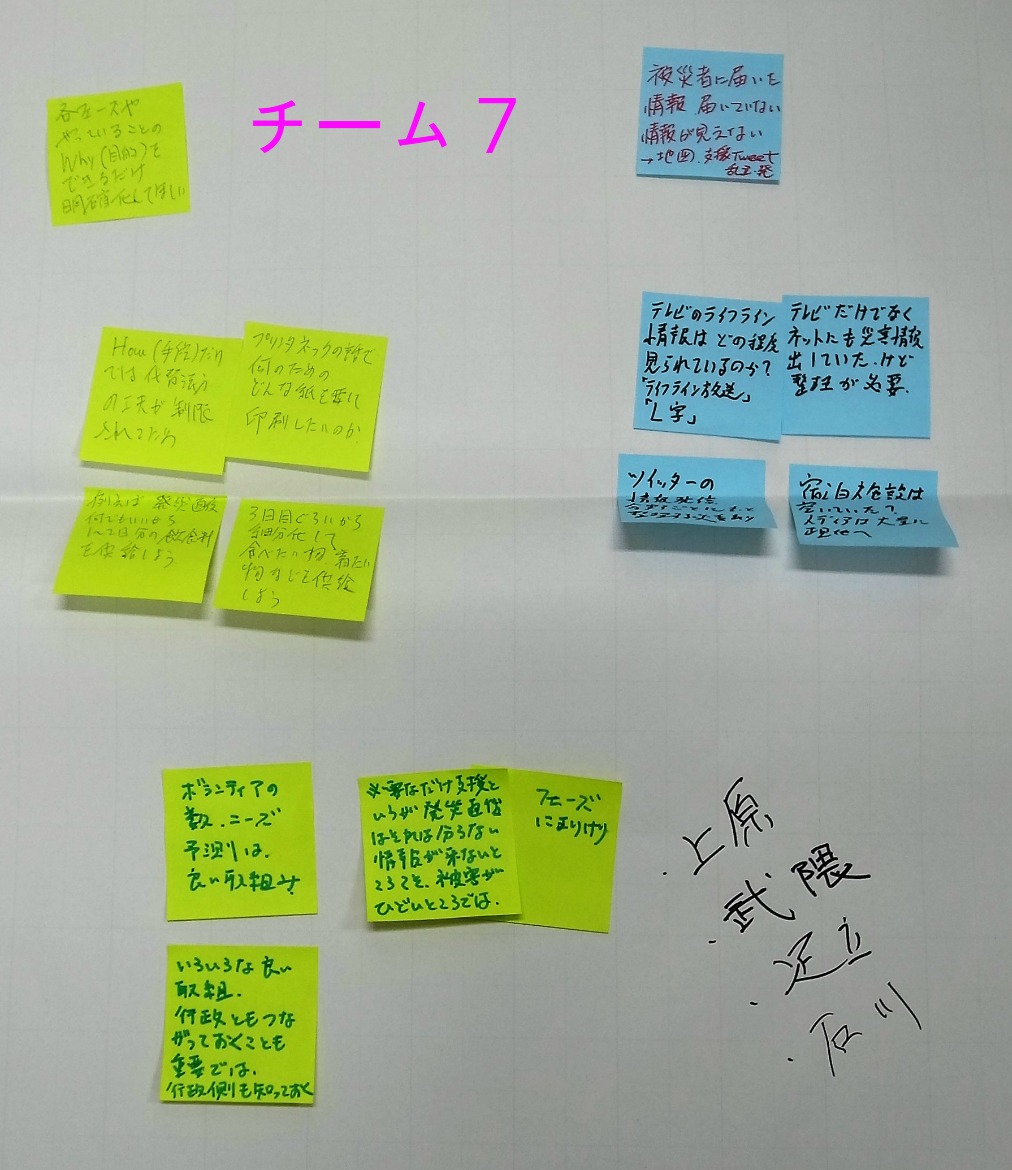 チーム 7
各フェーズや
やっていることの
Why (目的)を
できるだけ
明確化してほしい
被災者に届いた
情報 届いていない
情報が見えない
→地図、支援Tweet
How (手段)だけ
では代替法
の工夫が制限
されてたら
プリンタネックの話で
何のための
どんな紙を要に
印刷したいのか
テレビのライフライン
情報は どの程度
見られているのか?
「ライフライン放送」
「L字」
テレビだけでなく
ネットにも災害情報
出していた.けど
整理が必要.
例えば 発災直後
何でもいいから
1〜2日分の飲食料
を供給しよう
3日目ぐらいから
細分化して
食べたい物 着たい
物などを供給
しよう
ツイッターの
情報発信
宿泊施設は
空いていた?
メディアは大量に
現地へ
ボランティアの
数、ニーズ
予測りは、
良い取組み
必要なだけ支援と
いうが発災直後
はそれは分らない
情報が来ないと
ころこそ、被害が
ひどいところでは.
フェーズ
によりけり
いろいろな良い
取組.
行政ともつな
がっておくことも
重要では.
行政側も知っておく
・上原
・武隈
・足立
・石川